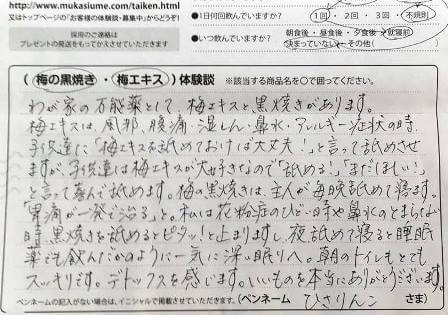 http://www.mukasiume.com/taiken.html
又はトップページの「お客様の体験談・募集中」からどうぞ!
採用のご連絡は
プレゼントの発送をもってかえさせていただきます
●1日何回飲んでいますか?
1回・2回・3回・不規則
●いつ飲んでいますか?
朝食後・昼食後・夕食後・就寝前
決まっていない・その他(
(梅の黒焼き・梅エキス)体験談 ※該当する商品名を○で囲ってください。
わが家の万能薬として、梅エキスと黒焼きがあります。
梅エキスは、風邪、腹痛・湿しん・鼻水・アレルギー症状の時、
子供達に「梅エキスを舐めておけば大丈夫!」と言って舐めさせ
ますが、子供達は梅エキスが大好きなので「舐める!」「まだほしい!」
と言って喜んで舐めます。梅の黒焼きは、主人が毎晩舐めて寝ます。
「胃痛が一発で治る」と。私は花粉症のひどい時や鼻水のとまらない
時、黒焼きを舐めるとピタッ!と止まります。夜舐めて寝ると睡眠
薬でも飲んだかのように一気に深い眠りへ。朝のトイレもとても
スッキリです。デトックスを感じます。いいものを本当にありがとうございます。
ペンネームの記入がない場合は、イニシャルで掲載させていただきます。(ペンネーム ひさりんこ さま)